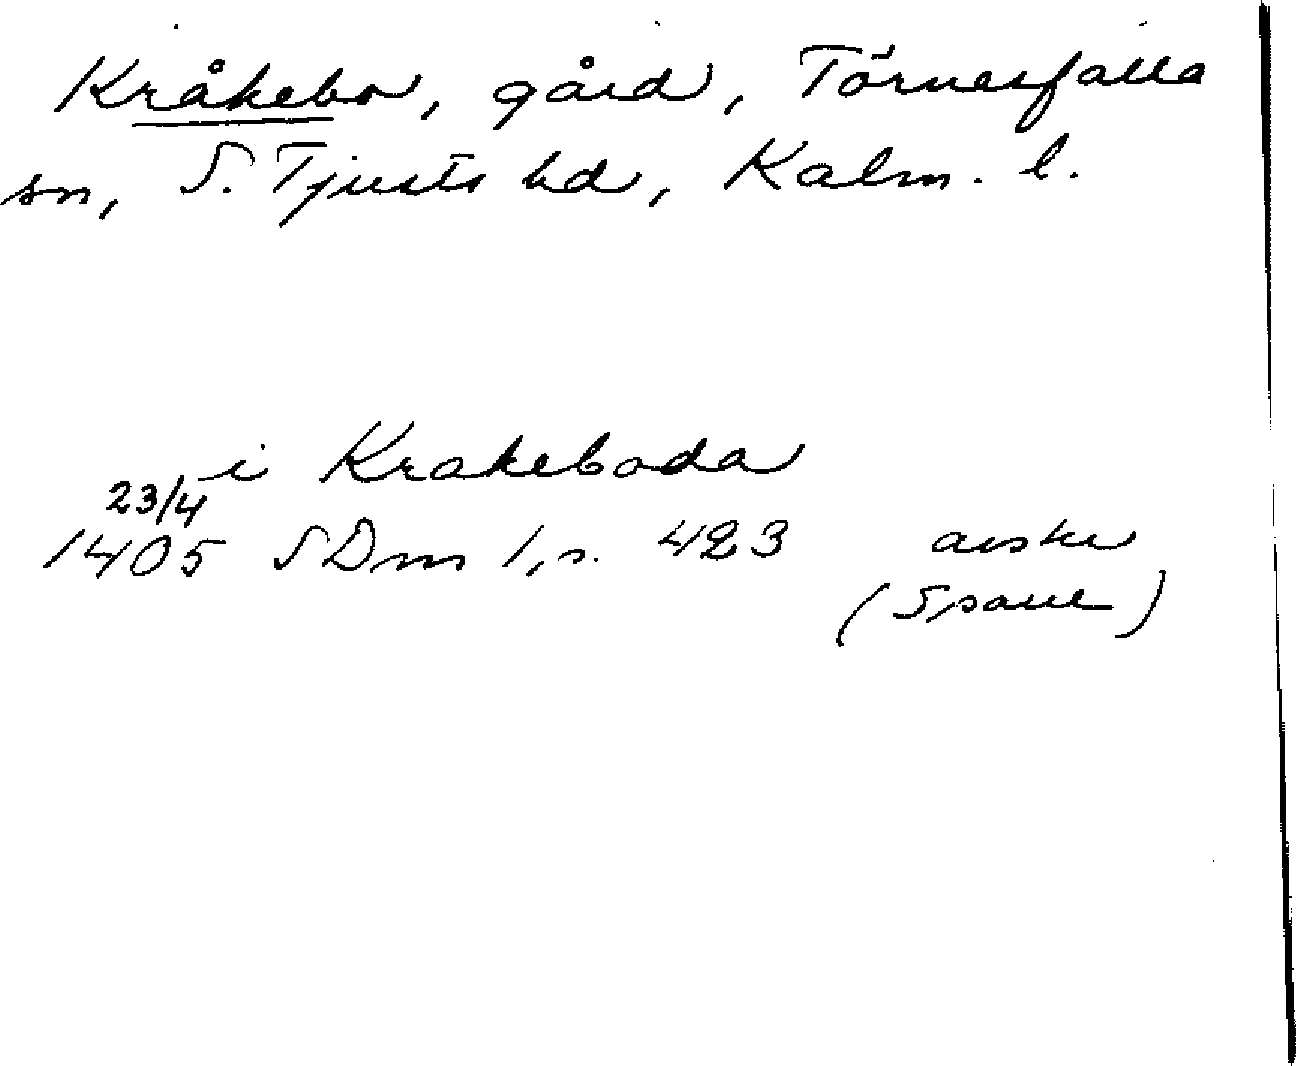 Kråkebo, gård, Törnesfalla
sn, S. Tjusts hd, Kalm. l.
i Krakeboda
23/4
1405 SDns 1, s. 423 avskr
(Svaul)